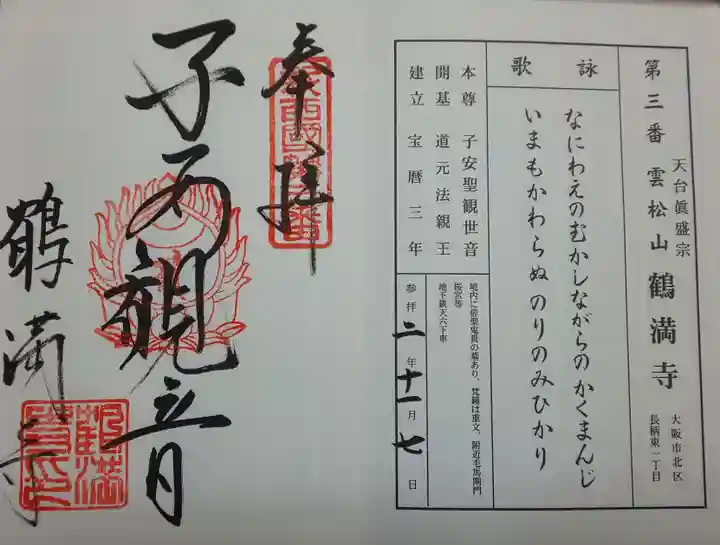 第三番 天台眞盛宗 雲松山 鶴満寺 大阪市北区 長柄東一丁目
詠歌
なにわえのむかしながらのかくまんじ
いまもかわらぬのりのみひかり
本尊 子安聖観世音
開基 道元法親王
建立 宝暦三年
境内に俳聖鬼貫の墓あり、梵鐘は重文、附近毛馬閘門
桜宮等
地下鉄天六下車
参拝 二年十一月七日
奉拝
子安観音
鶴満寺